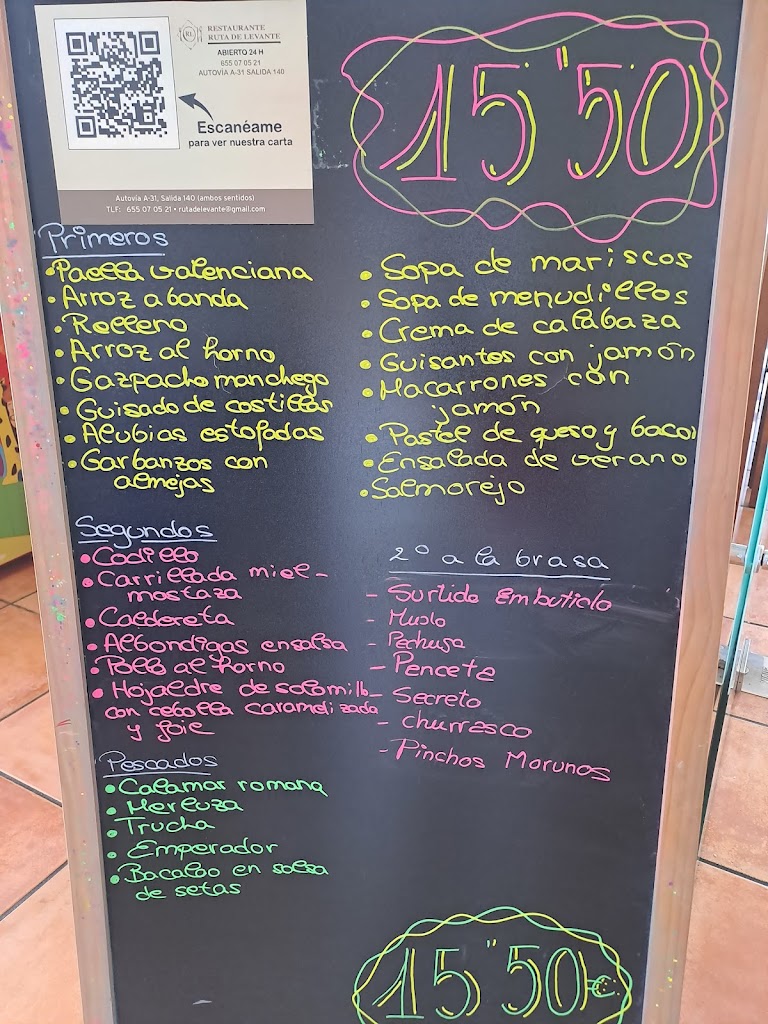 RESTAURANTE
RUTA DE LEVANTE
ABIERTO 24 H
655 07 05 21
AUTOVÍA A-31 SALIDA 140
Escanéame
para ver nuestra carta
Autovía A-31, Salida 140 (ambos sentidos)
TLF: 655 07 05 21 • rutadelevante@gmail.com
15'50
Primeros
• Paella valenciana
• Arroz a banda
• Relleno
• Arroz al horno
• Gazpacho manchego
• Guisado de costillas
• Alubias estofadas
• Garbanzos con
almejas
• Sopa de mariscos
• Sopa de menudillos
• Crema de calabaza
• Guisantes con jamón
• Macarrones con
jamón
• Pastel de queso y bacon
• Ensalada de verano
• Salmorejo
Segundos
• Codillo
• Carrillada miel-
mostaza
• Caldereta
• Albondigas en salsa
• Pollo al horno
• Hojaldre de solomillo
con cebolla caramelizada
y foie
2º a la brasa
- Surtido Embutido
- Muslo
- Pechuga
- Panceta
- Secreto
- Churrasco
- Pinchos Morunos
Pescados
• Calamar romana
• Merluza
• Trucha
• Emperador
• Bacalao en salsa
de setas
15"50€